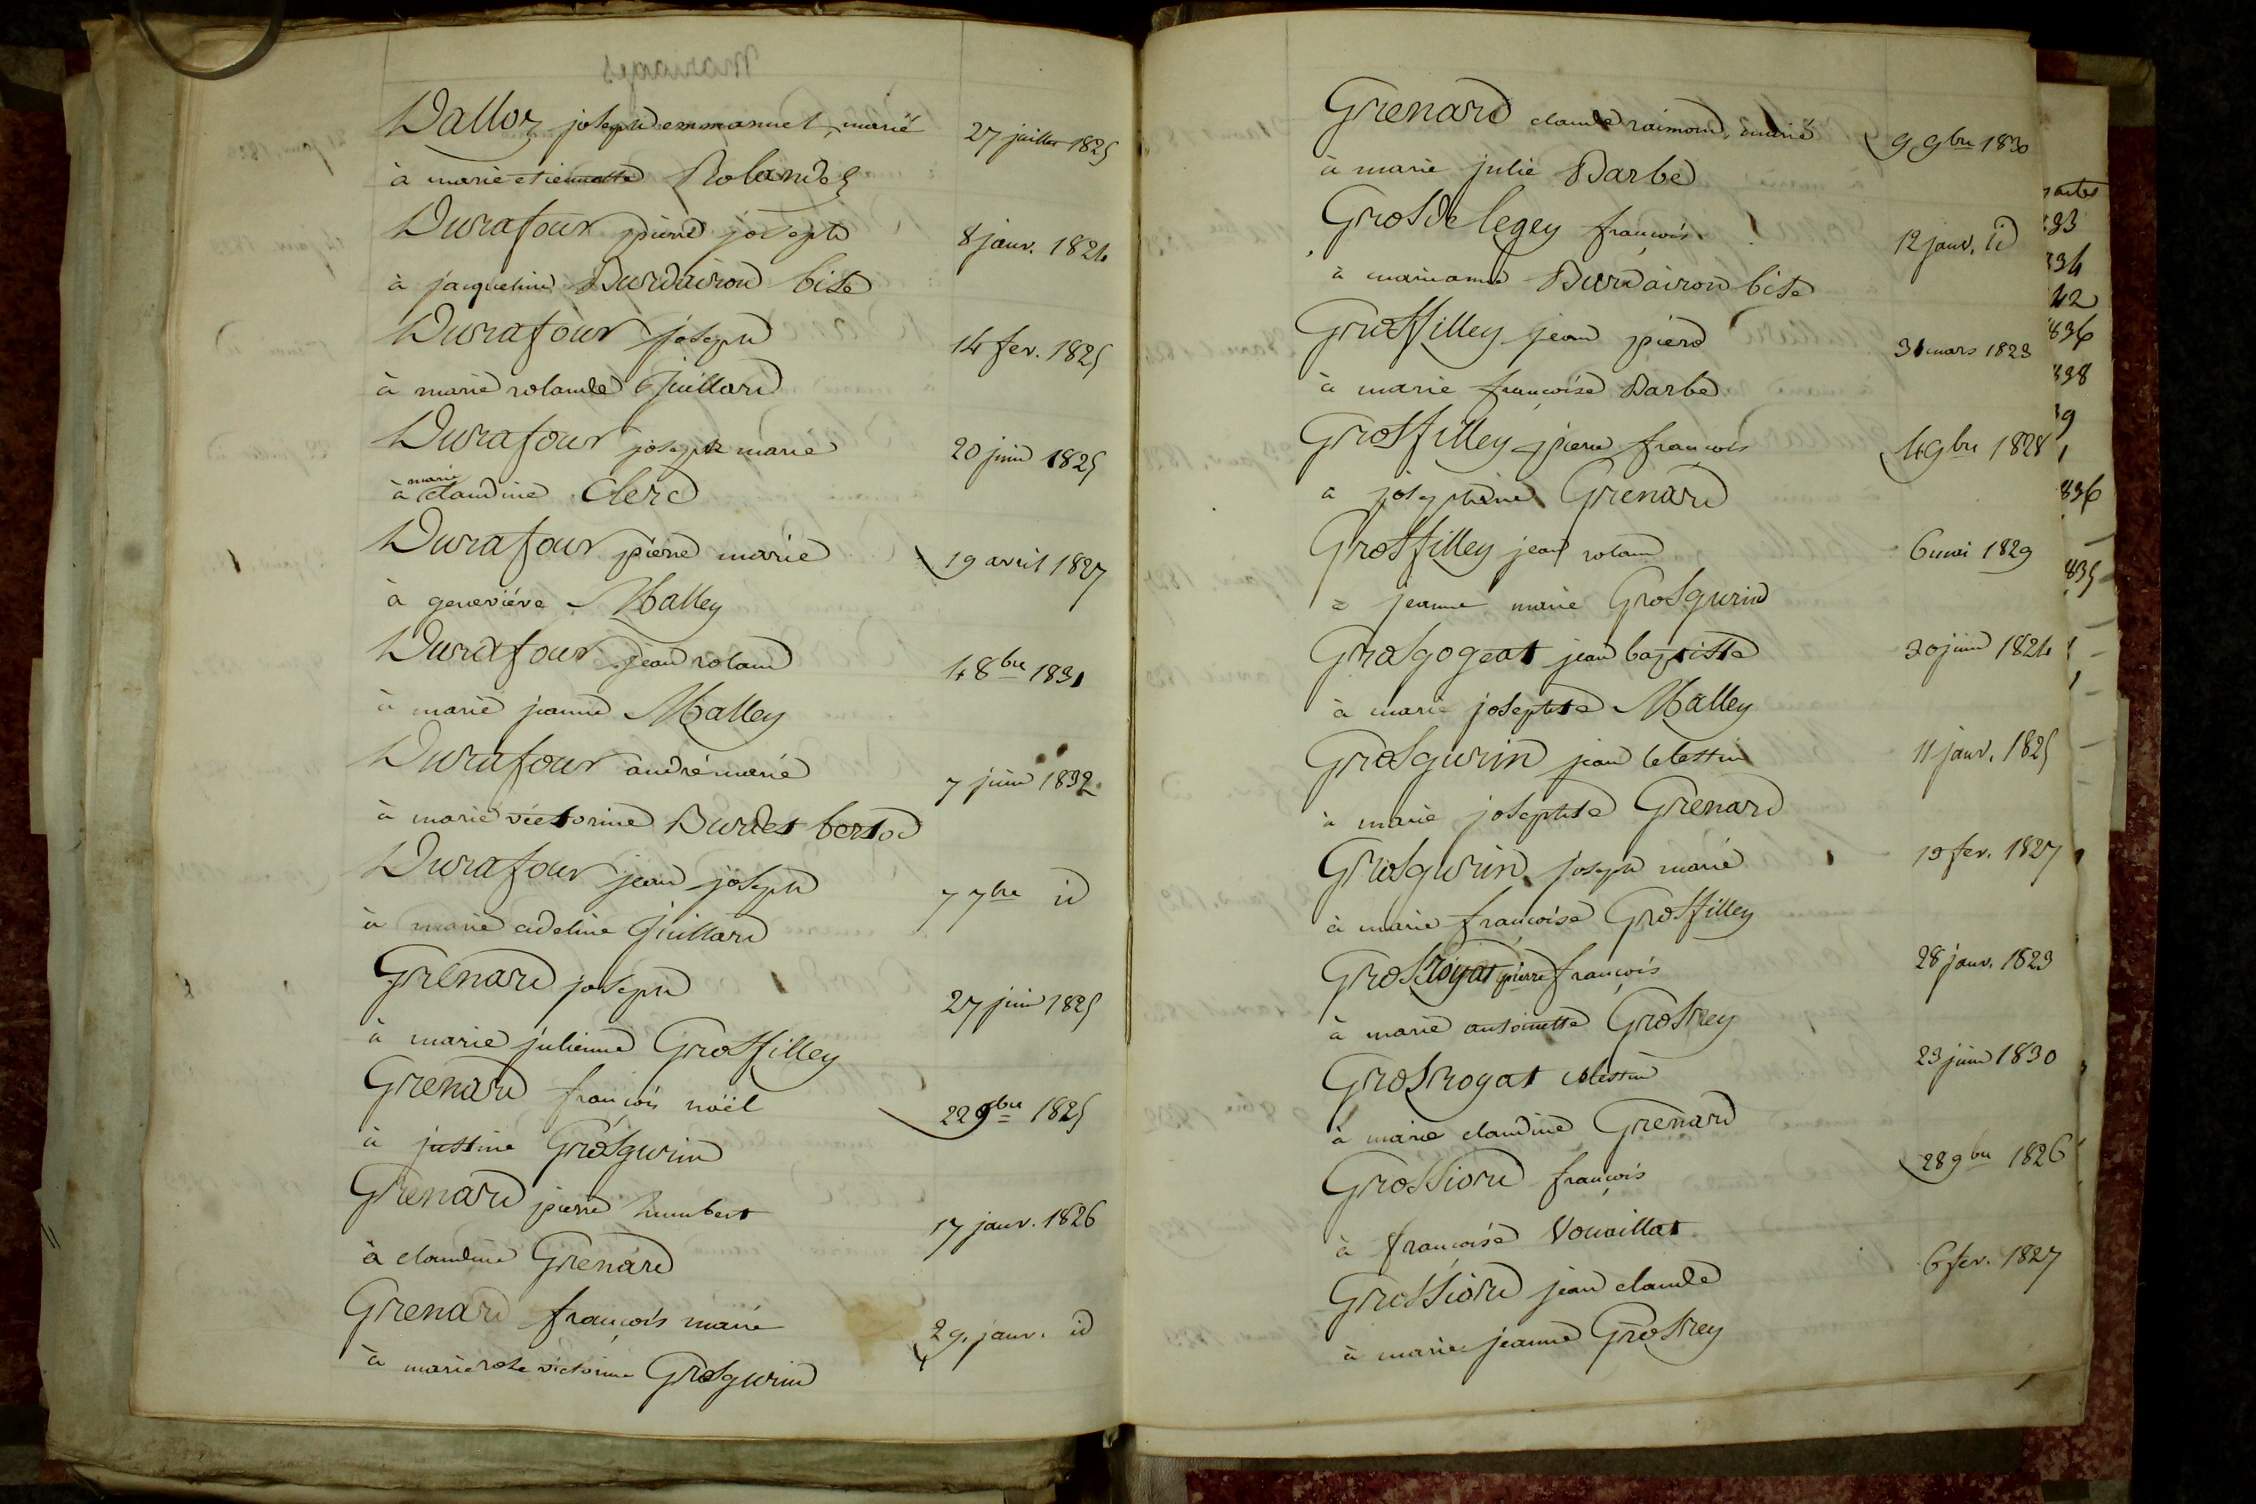 Dalloz joseph emmanuel, marié 27 juillet 1825
à marie etiennette Rolandez
Durafour pierre joseph 8 janv. 1824
à jacqueline Burdairon bise
Durafour joseph 14 fev. 1825
à marie rolande Juillard
Durafour joseph marie 20 juin 1825
à marie claudine Clerc
Durafour pierre marie 19 avril 1827
à geneviéve Malley
Durafour jean roland 4 8bre 1831
à marie jeanne Malley
Durafour andré marie 7 juin 1832
à marie victorine Burdet bertod
Durafour jean joseph 7 7bre id
à marie adeline Juillard
Grenard joseph 27 juin 1825
à marie julienne Grosfilley
Grenard françois noël 22 9bre 1825
à justine Grosgurin
Grenard pierre humbert 17 janv. 1826
à claudine Grenard
Grenard françois marie 29. janv. id
à marie rose victorine Grosgurin
Grenard claude raimond, marié 9 9bre 1830
à marie julie Barbe
Grosdelegey françois 12 janv. id
à marianne Burdairon bise
Grosfilley jean pierre 31 mars 1823
à marie françoise Barbe
Grosfilley pierre françois 4 9bre 1828
à josephine Grenard
Grosfilley jean roland 6 mai 1829
à jeanne marie Grosgurin
Grosgogeat jean baptiste 30 juin 1824
à marie josephte Malley
Grosgurin jean celestin 11 janv. 1825
à marie josephte Grenard
Grosgurin joseph marie 13 fev. 1827
à marie françoise Grosfilley
Grosroyat pierre françois 28 janv. 1823
à marie antoinette Grosrey
Grosroyat celestin 23 juin 1830
à marie claudine Grenard
Grossiord françois 28 9bre 1826
à françoise Vouaillat
Grossiord jean claude 6 fev. 1827
à marie jeanne Grosrey